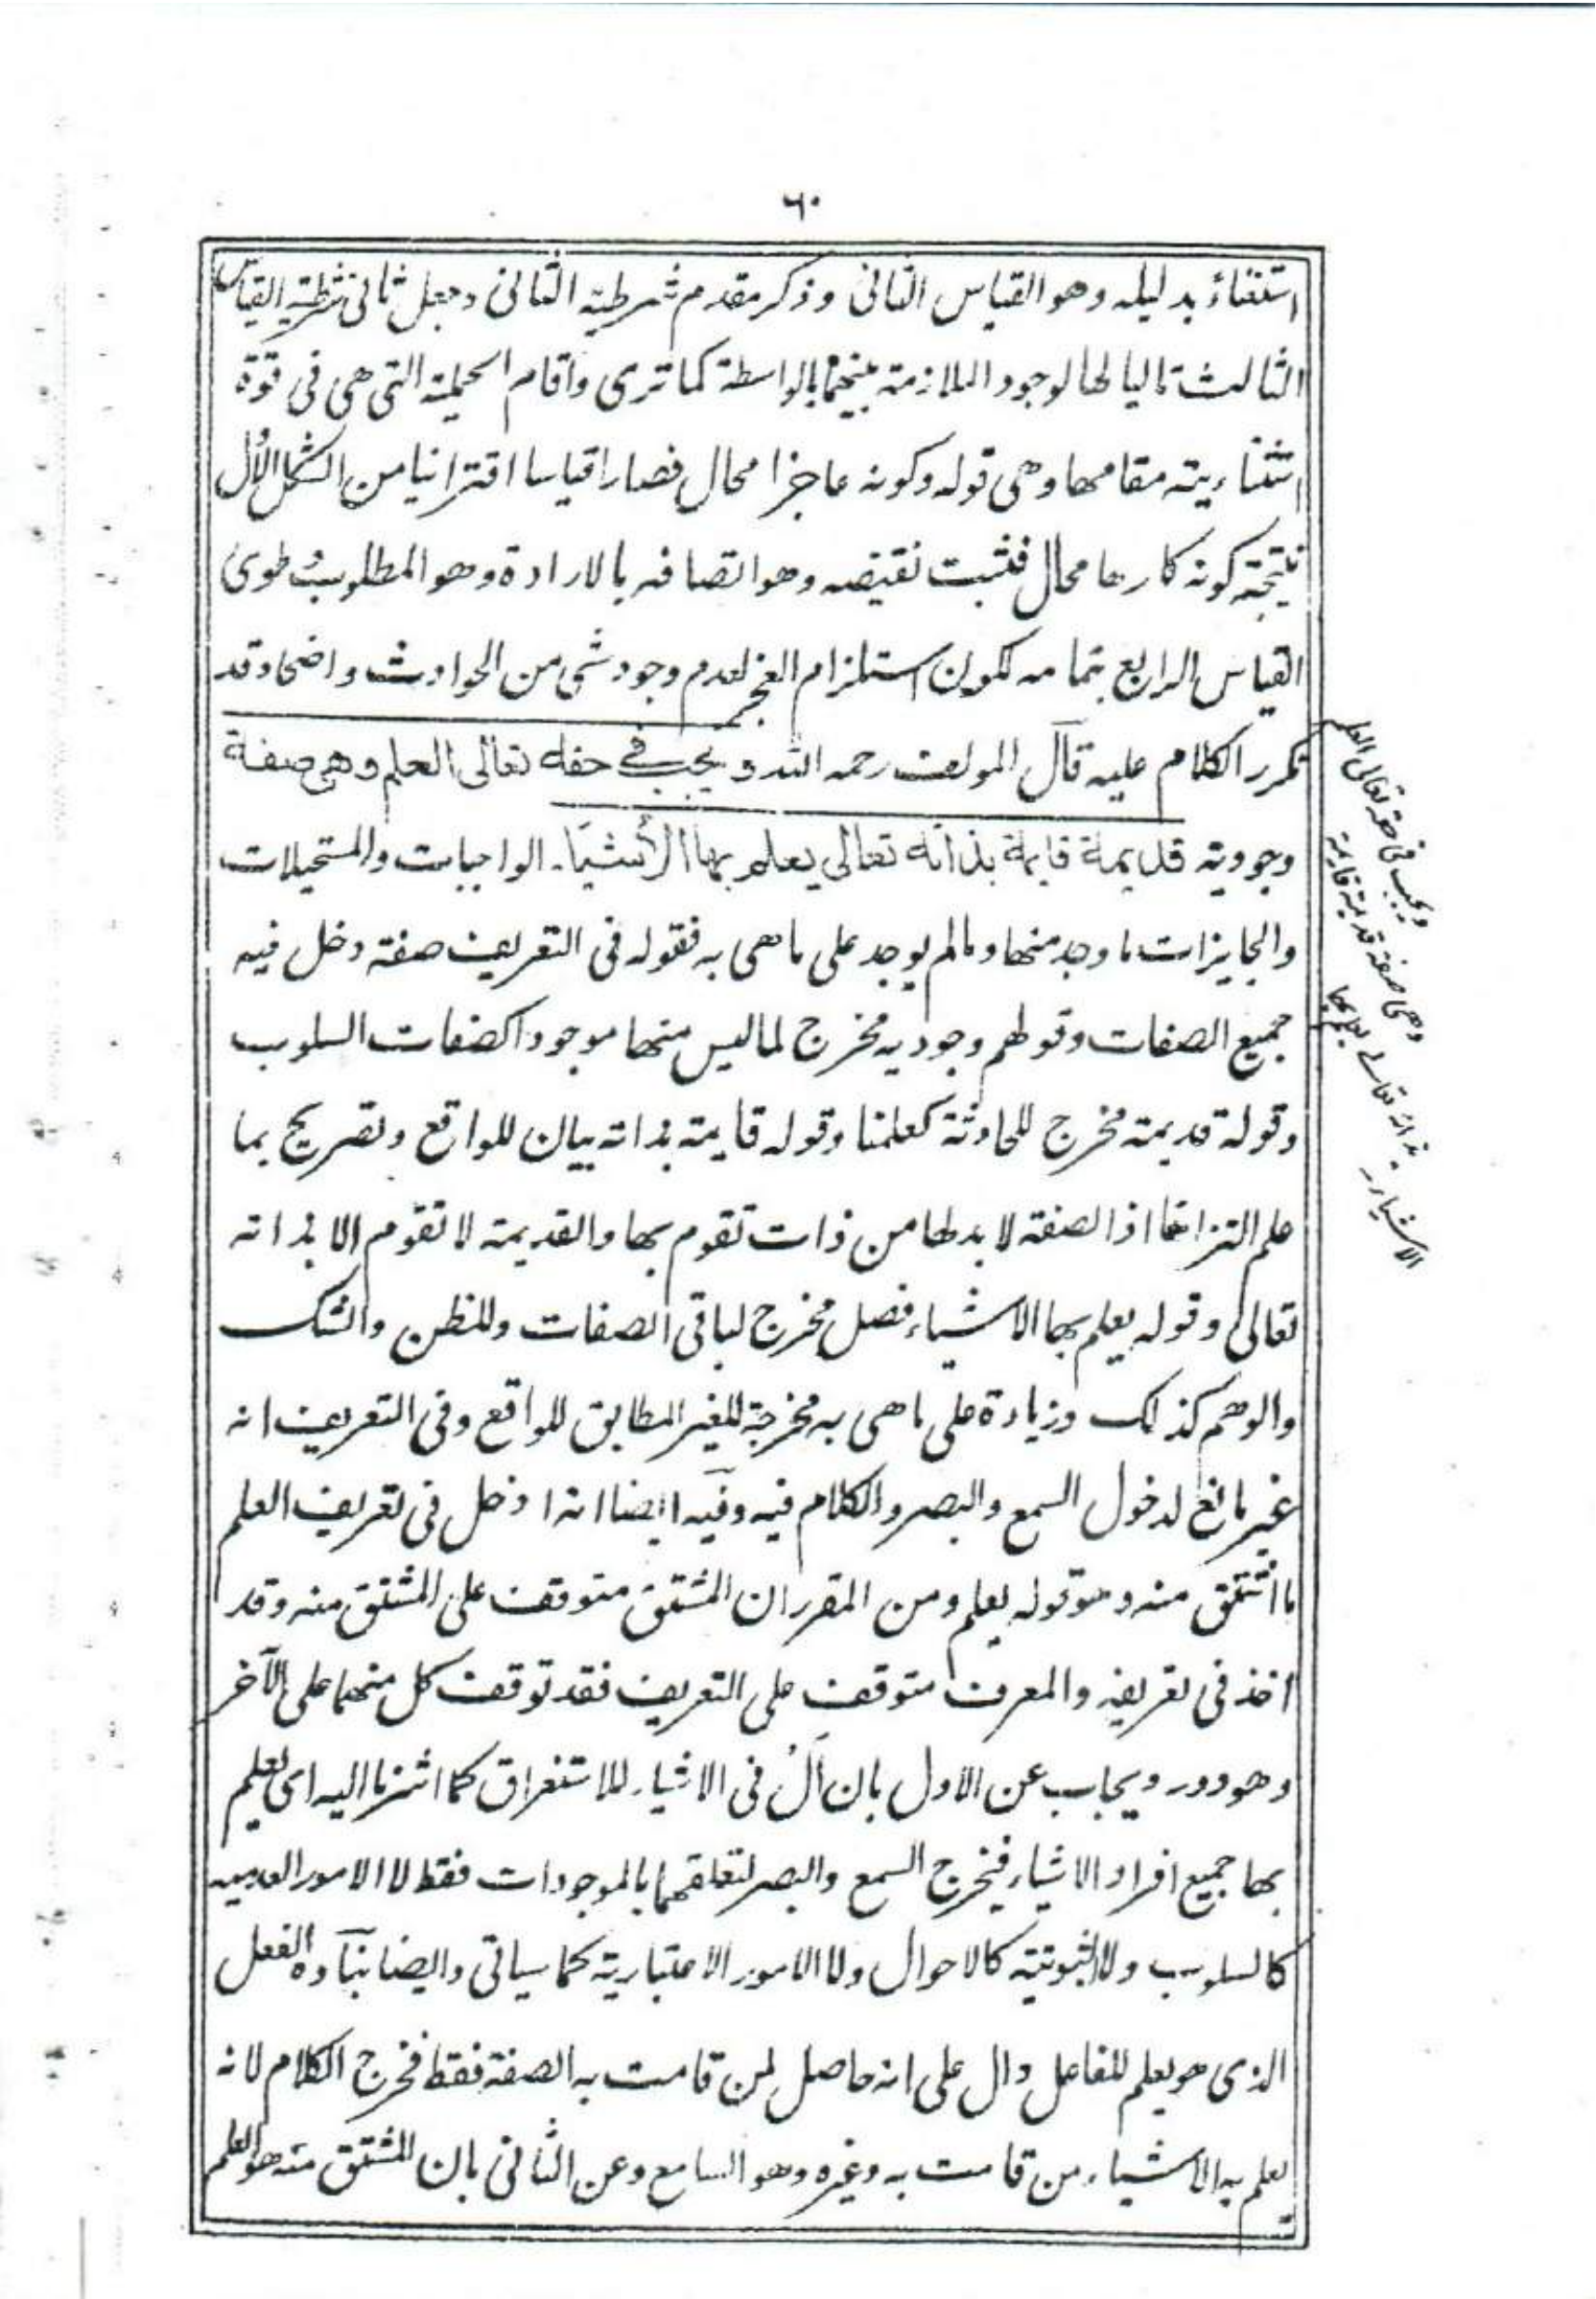 ٦٠
استثناءً بدليله وهو القياس الثانى وذكر مقدم شرطية الثانى وجعل ثانى شرطية القياس
الثالث تاليا لها لوجود الملازمة بينهما بالواسطة كما ترى واقام الحملية التى هى فى قوة
استثناءيته مقامها وهى قوله وكونه عاجزا محال فصار اقياسا اقترانيا من الشكل الاُول
نتيجته كونه كارها محال فثبت نقيضه وهو اتصافه بالارادة وهو المطلوب وطوى
القياس الرابع بتمامه لكون استلزام العجز لعدم وجود شى من الحوادث واضحا وقد
تكرر الكلام عليه قال المولف رحمه الله ويجب فى حقه تعالى العلم وهى صفة
وجودية قديمة قايمة بذاته تعالى يعلم بها الأشياء الواجبات والمستحيلات
والجايزات ما وجد منها ومالم يوجد على ما هى به فقوله فى التعريف صفة دخل فيه
جميع الصفات وقولهم وجوديه مخرج لما ليس منها موجودا كصفات السلوب
وقوله قديمة مخرج للحادثة كعلمنا وقوله قايمة بذاته بيان للواقع وتصريح بما
علم التزاما اذ الصفة لا بد لها من ذات تقوم بها والقديمة لا تقوم الا بذاته
تعالى وقوله يعلم بها الاشياء فصل مخرج لباقى الصفات وللظن والشك
والوهم كذلك وزيادة على ما هى به مخرجة للغير المطابق للواقع وفى التعريف انه
غير مانع لدخول السمع والبصر والكلام فيه وفيه ايضا انه ادخل فى تعريف العلم
ما اشتق منه وهو قوله يعلم ومن المقرر ان المشتق متوقف على المشتق منه وقد
اخذ فى تعريفه والمعرف متوقف على التعريف فقد توقف كل منهما على الآخر
وهو دور ويجاب عن الاول بان اَلْ فى الاشياء للاستغراق كما اشرنا اليه اى يعلم
بها جميع افراد الاشياء فيخرج السمع والبصر لتعلقهما بالموجودات فقط لا الامور العدميه
كالسلوب ولا الثبوتية كالاحوال ولا الامور الاعتبارية كما سياتى وايضا اسناده الفعل
الذى هو يعلم للفاعل دال على انه حاصل لمن قامت به الصفة فقط فخرج الكلام لانه
يعلم به الاشياء من قامت به وغيره وهو السامع وعن الثانى بان المشتق منه هو العلم
ويجب فى حقه تعالى العلم
وهى صفة قديمة قايمة
بذاته تعالى يعلم بها
الاشياء